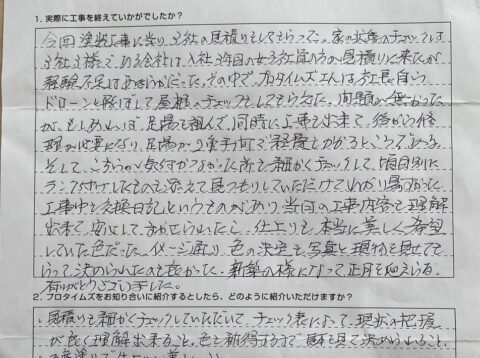 1. 実際に工事を終えていかがでしたか？
今回塗装工事に当り3社の見積りをしてもらって、家の状態のチェックは
3社3様で、ある会社は、入社3年目の女子社員のみ見積りに来たが
経験不足はあきらかだった。その中で、プロタイムズさんは社長自ら
ドローンを飛ばして屋根のチェックをしてもらえた。問題が無かった
が、もしあれば、足場を組んで、同時に工事も出来て、後から修
理が必要になり、足場が2重手間で経費もかかるところである。
そして、こちらが気付かなかった所も細かくチェックして、項目別に
ランク付けしたものも添えて見つもりしていただけてわかり易かった。
工事中も交換日記というものがあり当日の工事内容も理解
出来て、安心してまかせられたし、仕上りも本当に美しく希望
していた色だった。イメージ通り、色の決定も、写真と現物を見せても
らって、決められたのも良かった。新築の様になって正月を迎えられる。
有りがとうございました。
2. プロタイムズをお知り合いに紹介するとしたら、どのように紹介いただけますか？
・見積りも細かくチェックしていただいて、チェック表によって、現状の把握
が良く理解出来ること。色も納得するまで